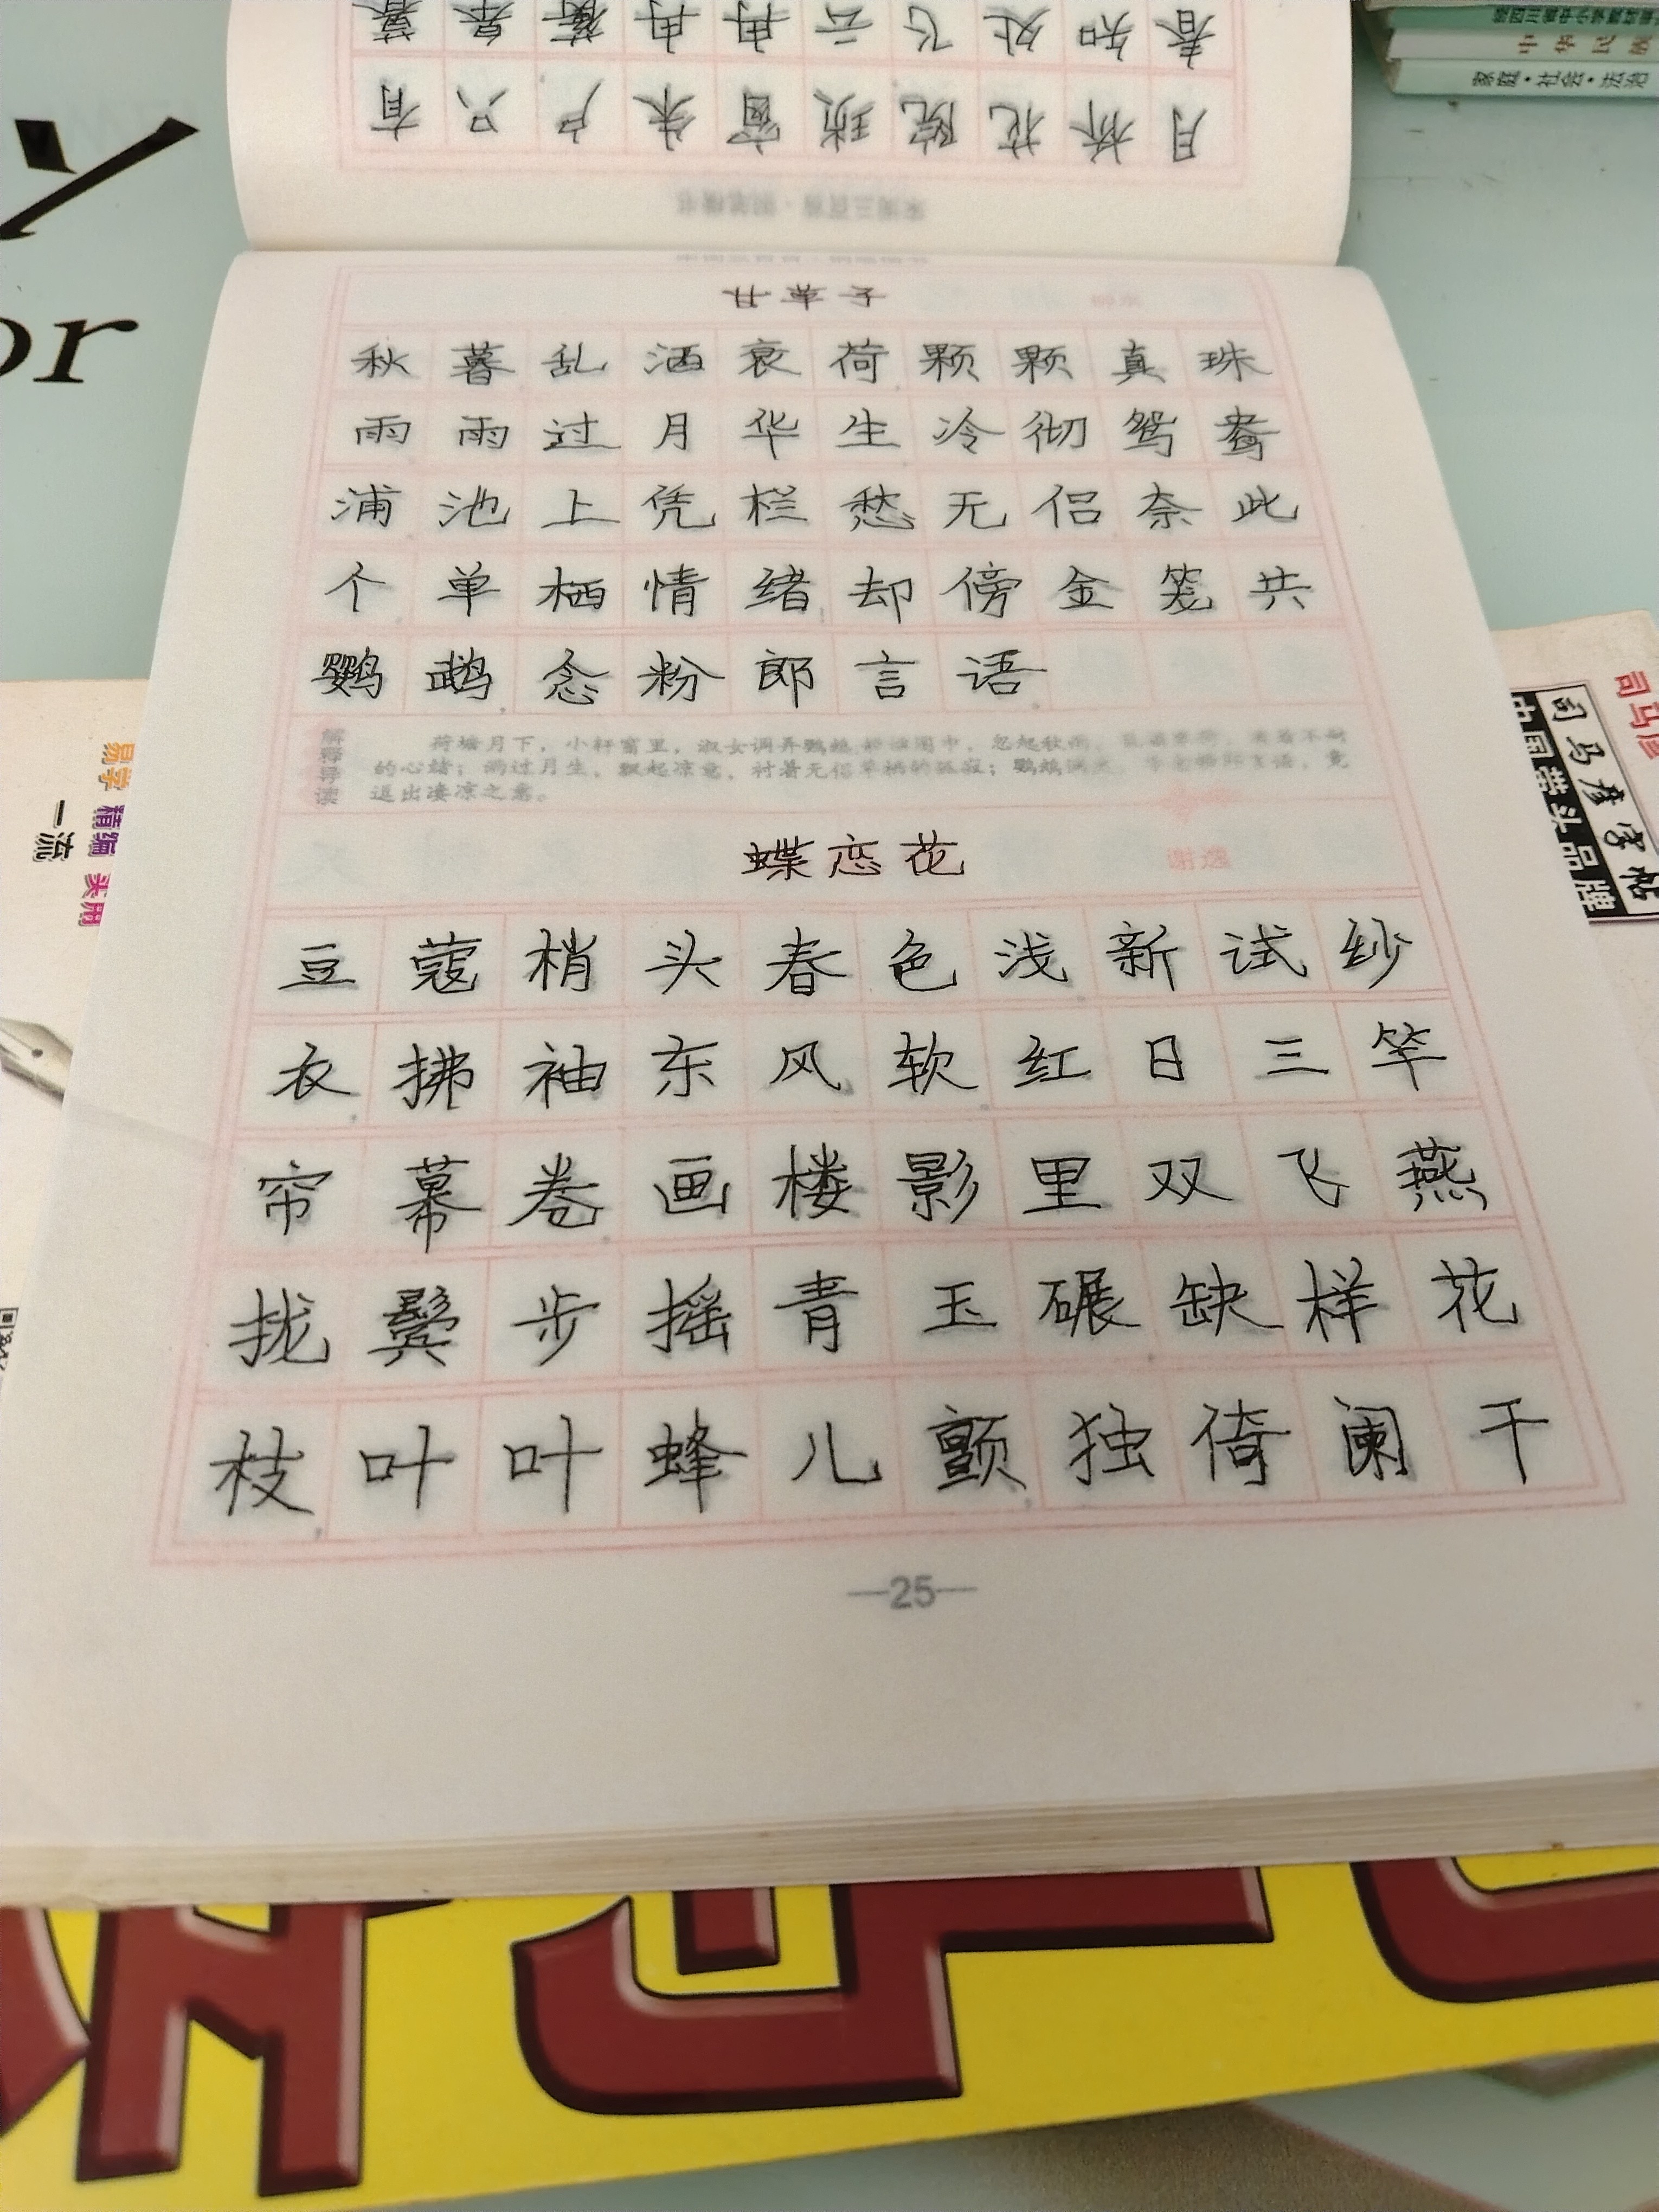 春知处飞云冉冉蘅皋暮
月桥花院琐窗朱户只有
甘草子
秋暮乱洒衰荷颗颗真珠
雨雨过月华生冷彻鸳鸯
浦池上凭栏愁无侣奈此
个单栖情绪却傍金笼共
鹦鹉念粉郎言语
解释导读
的心绪；雨过月生，飘起凉意，衬着无侣单栖的孤寂；鹦鹉
逗出凄凉之意。
蝶恋花 谢逸
豆蔻梢头春色浅新试纱
衣拂袖东风软红日三竿
帘幕卷画楼影里双飞燕
拢鬓步摇青玉碾缺样花
枝叶叶蜂儿颤独倚阑干
—25—
家庭·社会·法治
中华民族
司马彦
司马彦字帖
中国带头品牌
易学 精编 实用
一流
or